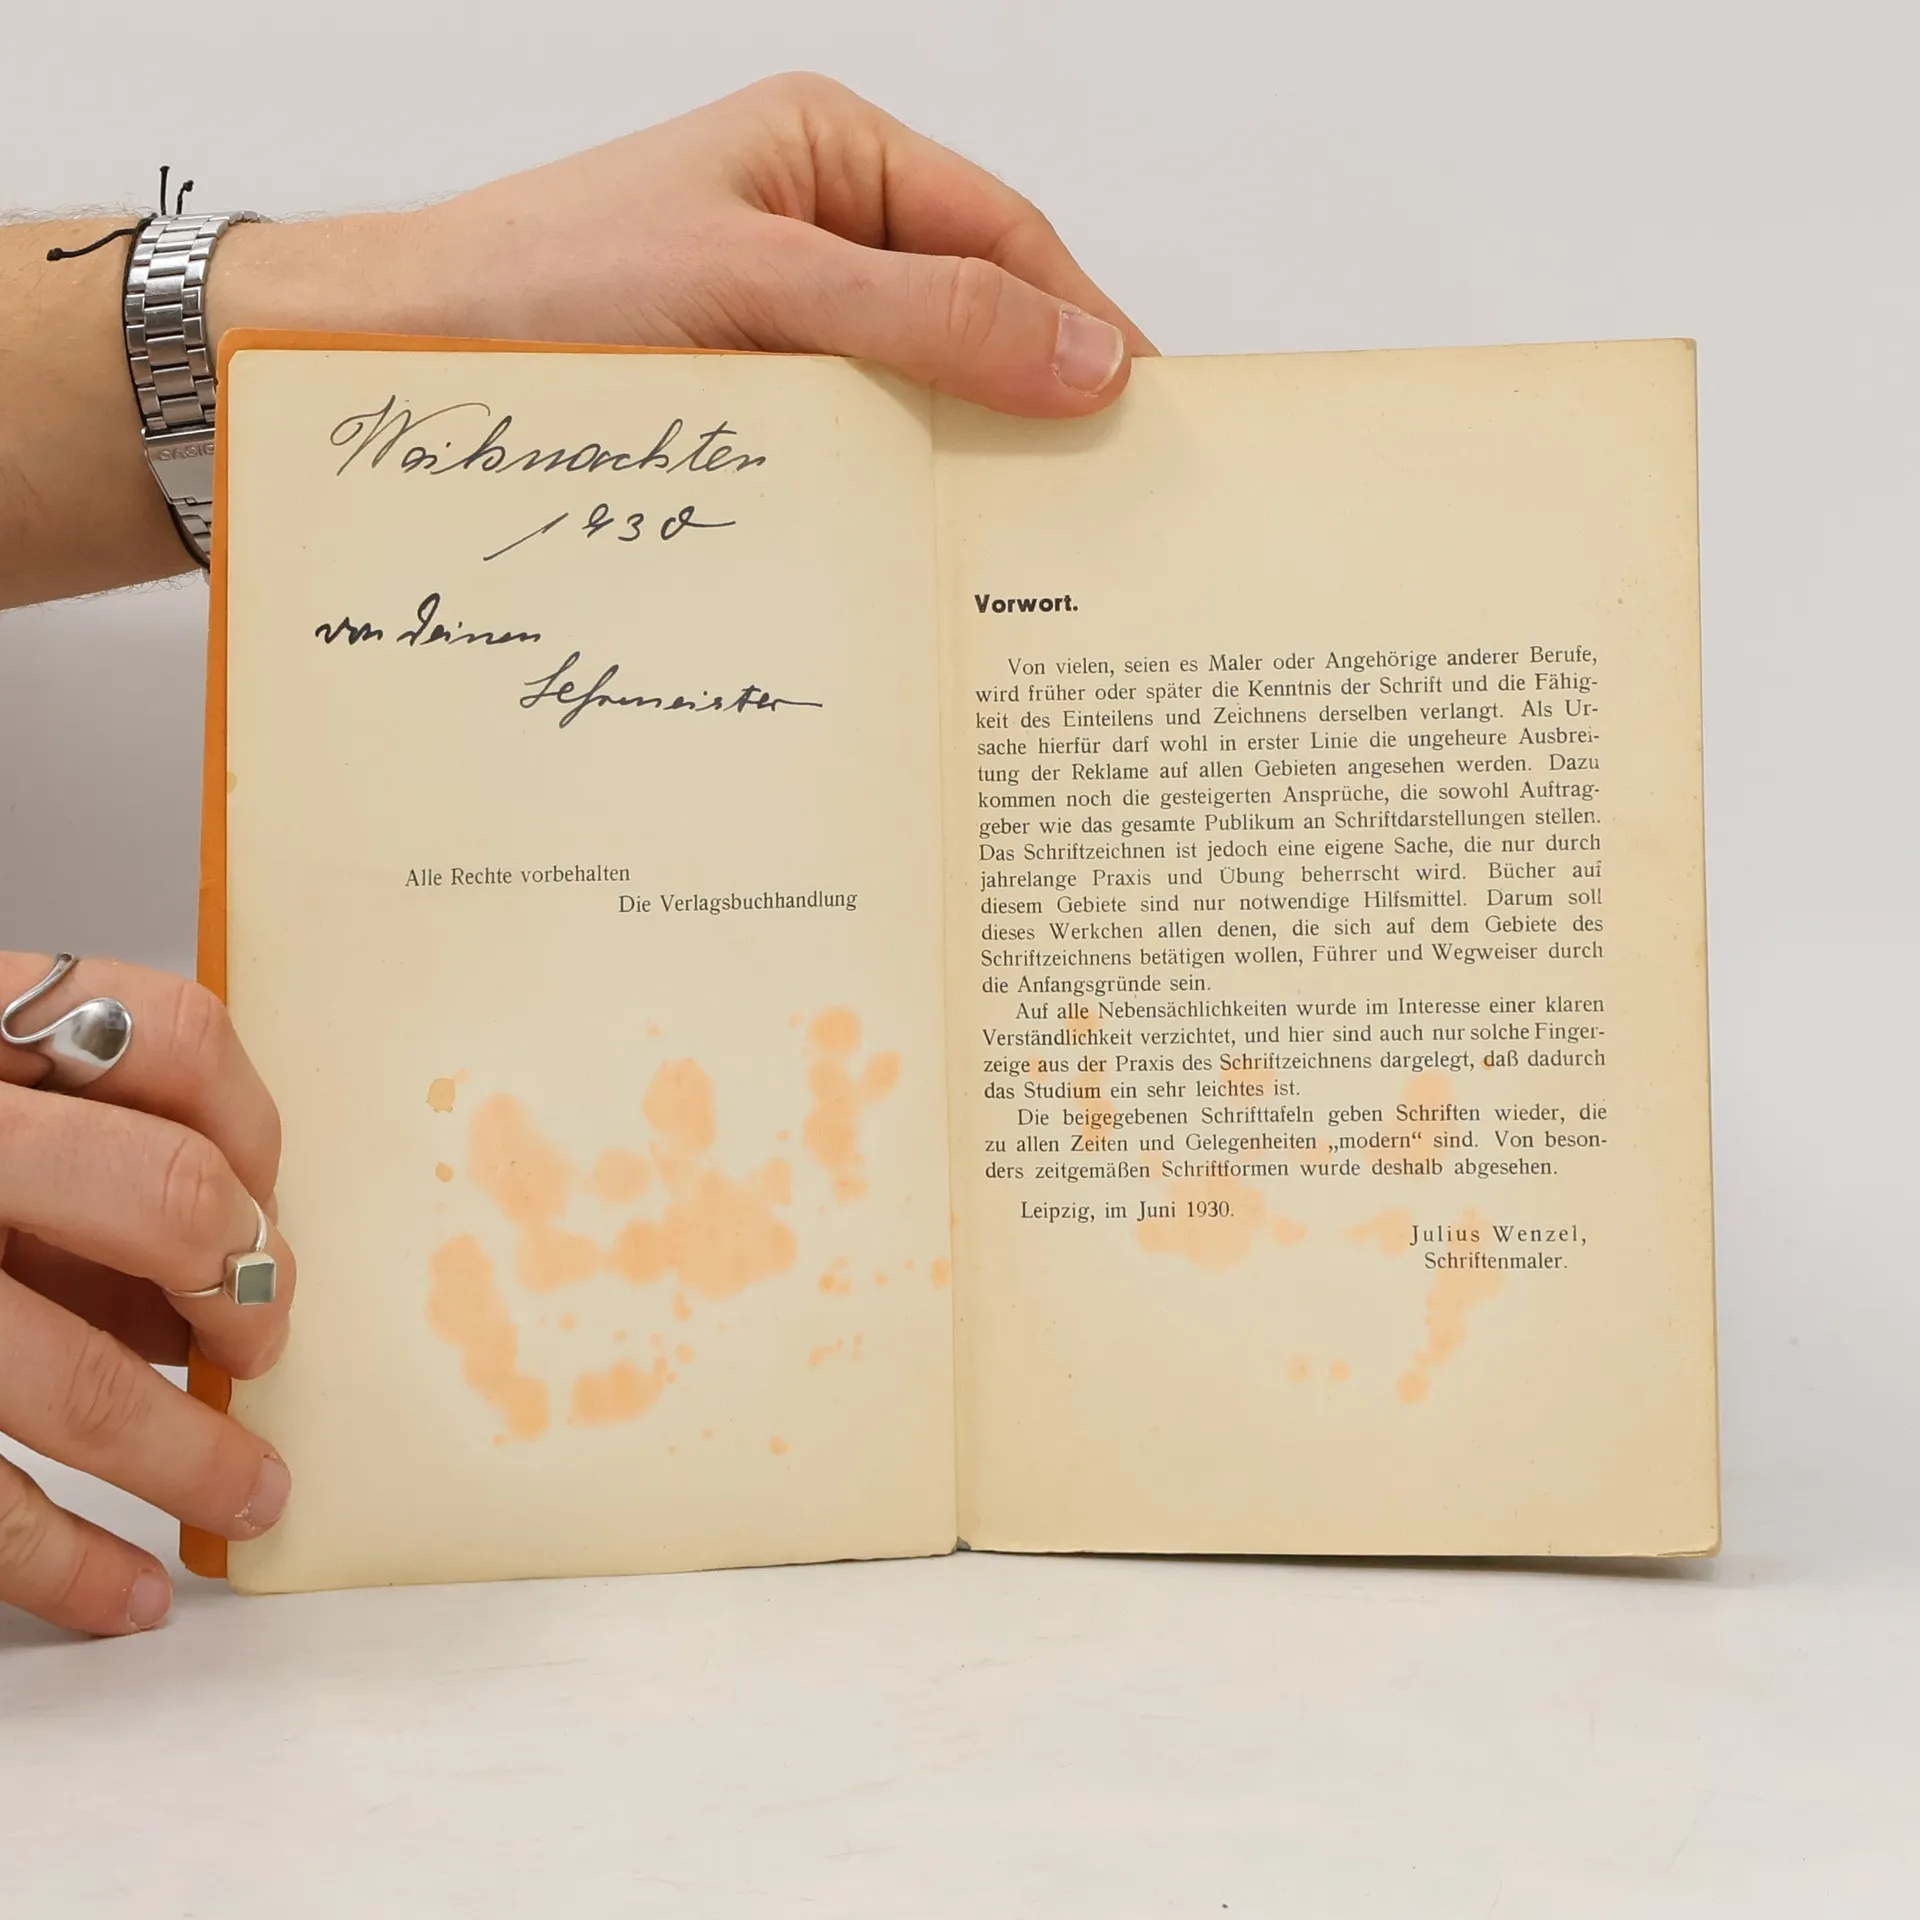 CASIO
Weihnachten
1930
von Deinem
Lehrmeister
Alle Rechte vorbehalten
Die Verlagsbuchhandlung
Vorwort.
Von vielen, seien es Maler oder Angehörige anderer Berufe,
wird früher oder später die Kenntnis der Schrift und die Fähig-
keit des Einteilens und Zeichnens derselben verlangt. Als Ur-
sache hierfür darf wohl in erster Linie die ungeheure Ausbrei-
tung der Reklame auf allen Gebieten angesehen werden. Dazu
kommen noch die gesteigerten Ansprüche, die sowohl Auftrag-
geber wie das gesamte Publikum an Schriftdarstellungen stellen.
Das Schriftzeichnen ist jedoch eine eigene Sache, die nur durch
jahrelange Praxis und Übung beherrscht wird. Bücher auf
diesem Gebiete sind nur notwendige Hilfsmittel. Darum soll
dieses Werkchen allen denen, die sich auf dem Gebiete des
Schriftzeichnens betätigen wollen, Führer und Wegweiser durch
die Anfangsgründe sein.
Auf alle Nebensächlichkeiten wurde im Interesse einer klaren
Verständlichkeit verzichtet, und hier sind auch nur solche Finger-
zeige aus der Praxis des Schriftzeichnens dargelegt, daß dadurch
das Studium ein sehr leichtes ist.
Die beigegebenen Schrifttafeln geben Schriften wieder, die
zu allen Zeiten und Gelegenheiten „modern“ sind. Von beson-
ders zeitgemäßen Schriftformen wurde deshalb abgesehen.
Leipzig, im Juni 1930.
Julius Wenzel,
Schriftenmaler.